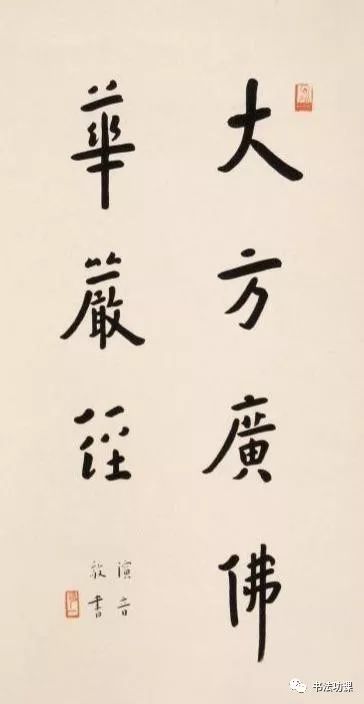 大方廣佛
華嚴經
演音
敬書
书法功课